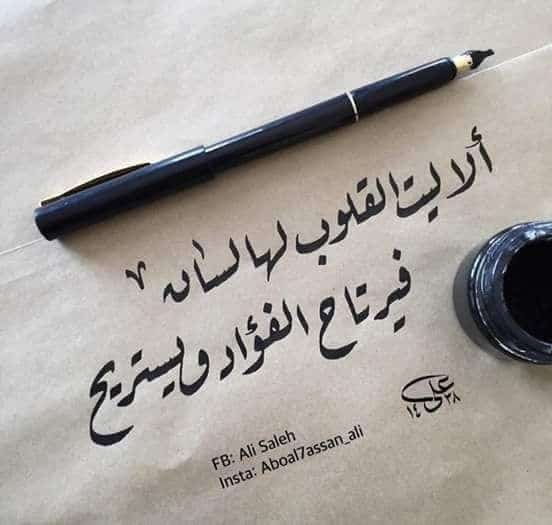 ألا ليت القلوب لها لسان
فيرتاح الفؤاد ويستريح
علي
١٤٣٨
FB: Ali Saleh
Insta: Aboal7assan_ali